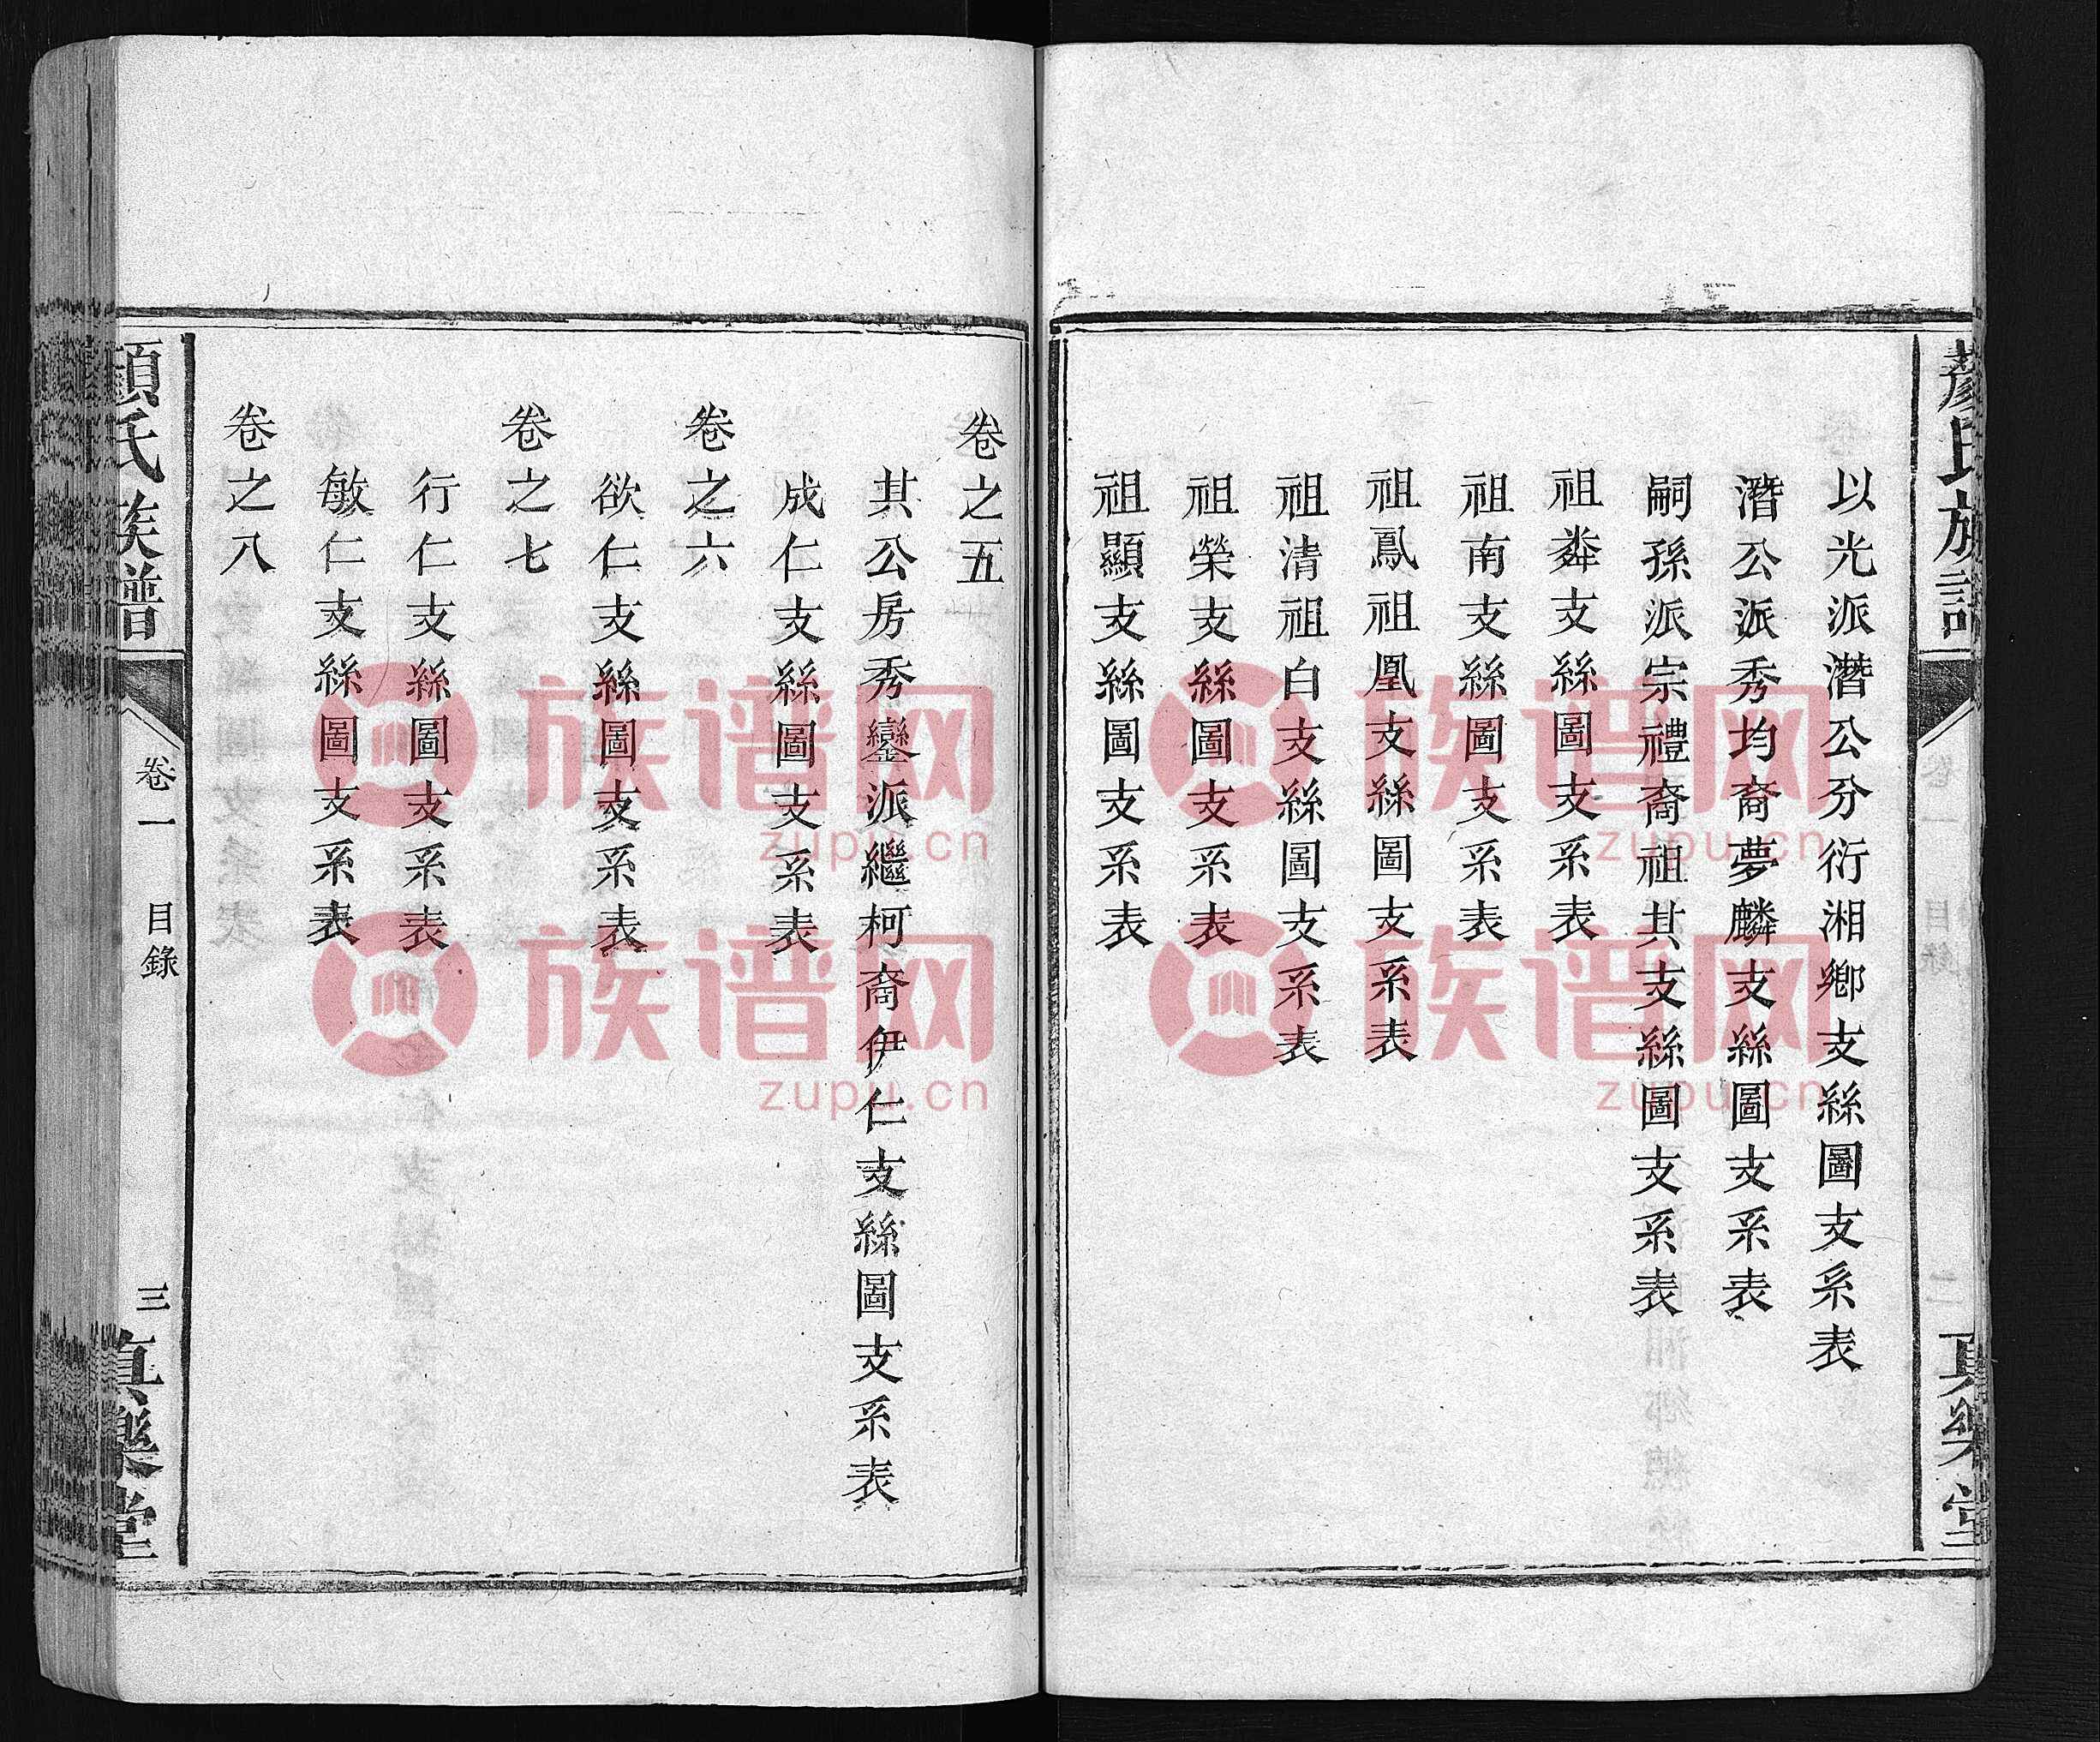 顏氏族譜
卷一 目錄
二
真樂堂
以光派潛公分衍湘鄉支絲圖支系表
潛公派秀均裔夢麟支絲圖支系表
嗣孫派宗禮裔祖其支絲圖支系表
祖粦支絲圖支系表
祖南支絲圖支系表
祖鳳祖凰支絲圖支系表
祖清祖白支絲圖支系表
祖榮支絲圖支系表
祖顯支絲圖支系表
卷之五
其公房秀鑾派繼柯裔伊仁支絲圖支系表
成仁支絲圖支系表
卷之六
欲仁支絲圖支系表
卷之七
行仁支絲圖支系表
敏仁支絲圖支系表
卷之八
顏氏族譜
卷一 目錄
三
真樂堂
族谱网
zupu.cn
族谱网
zupu.cn
族谱网
zupu.cn
族谱网
zupu.cn